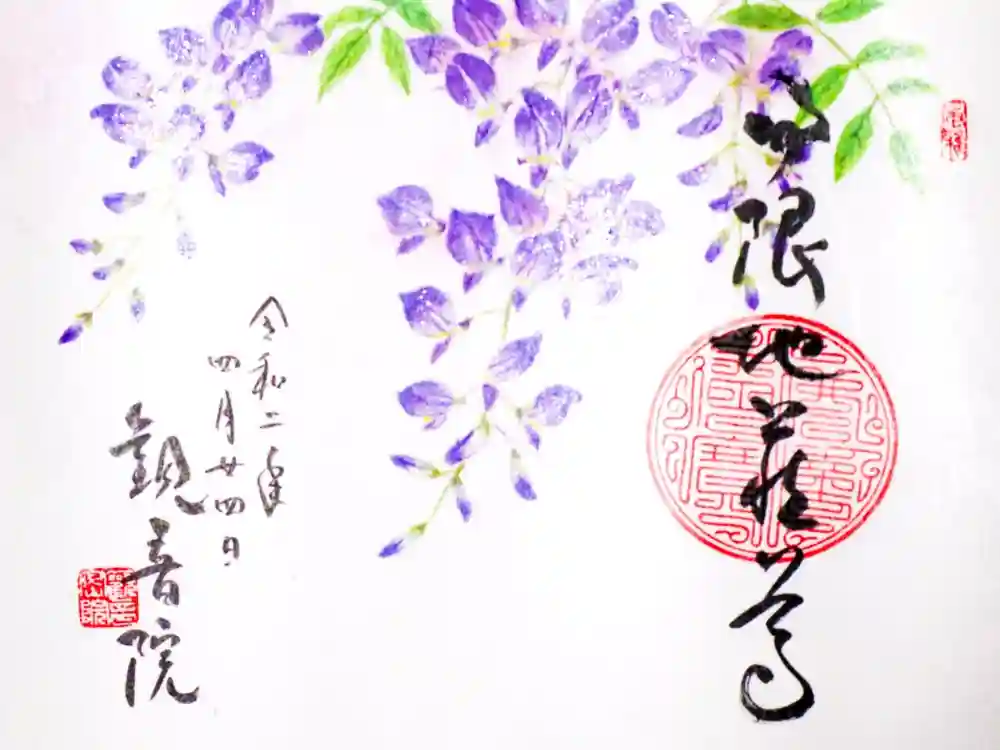 日限地蔵尊
令和二年
四月廿四日
観音院